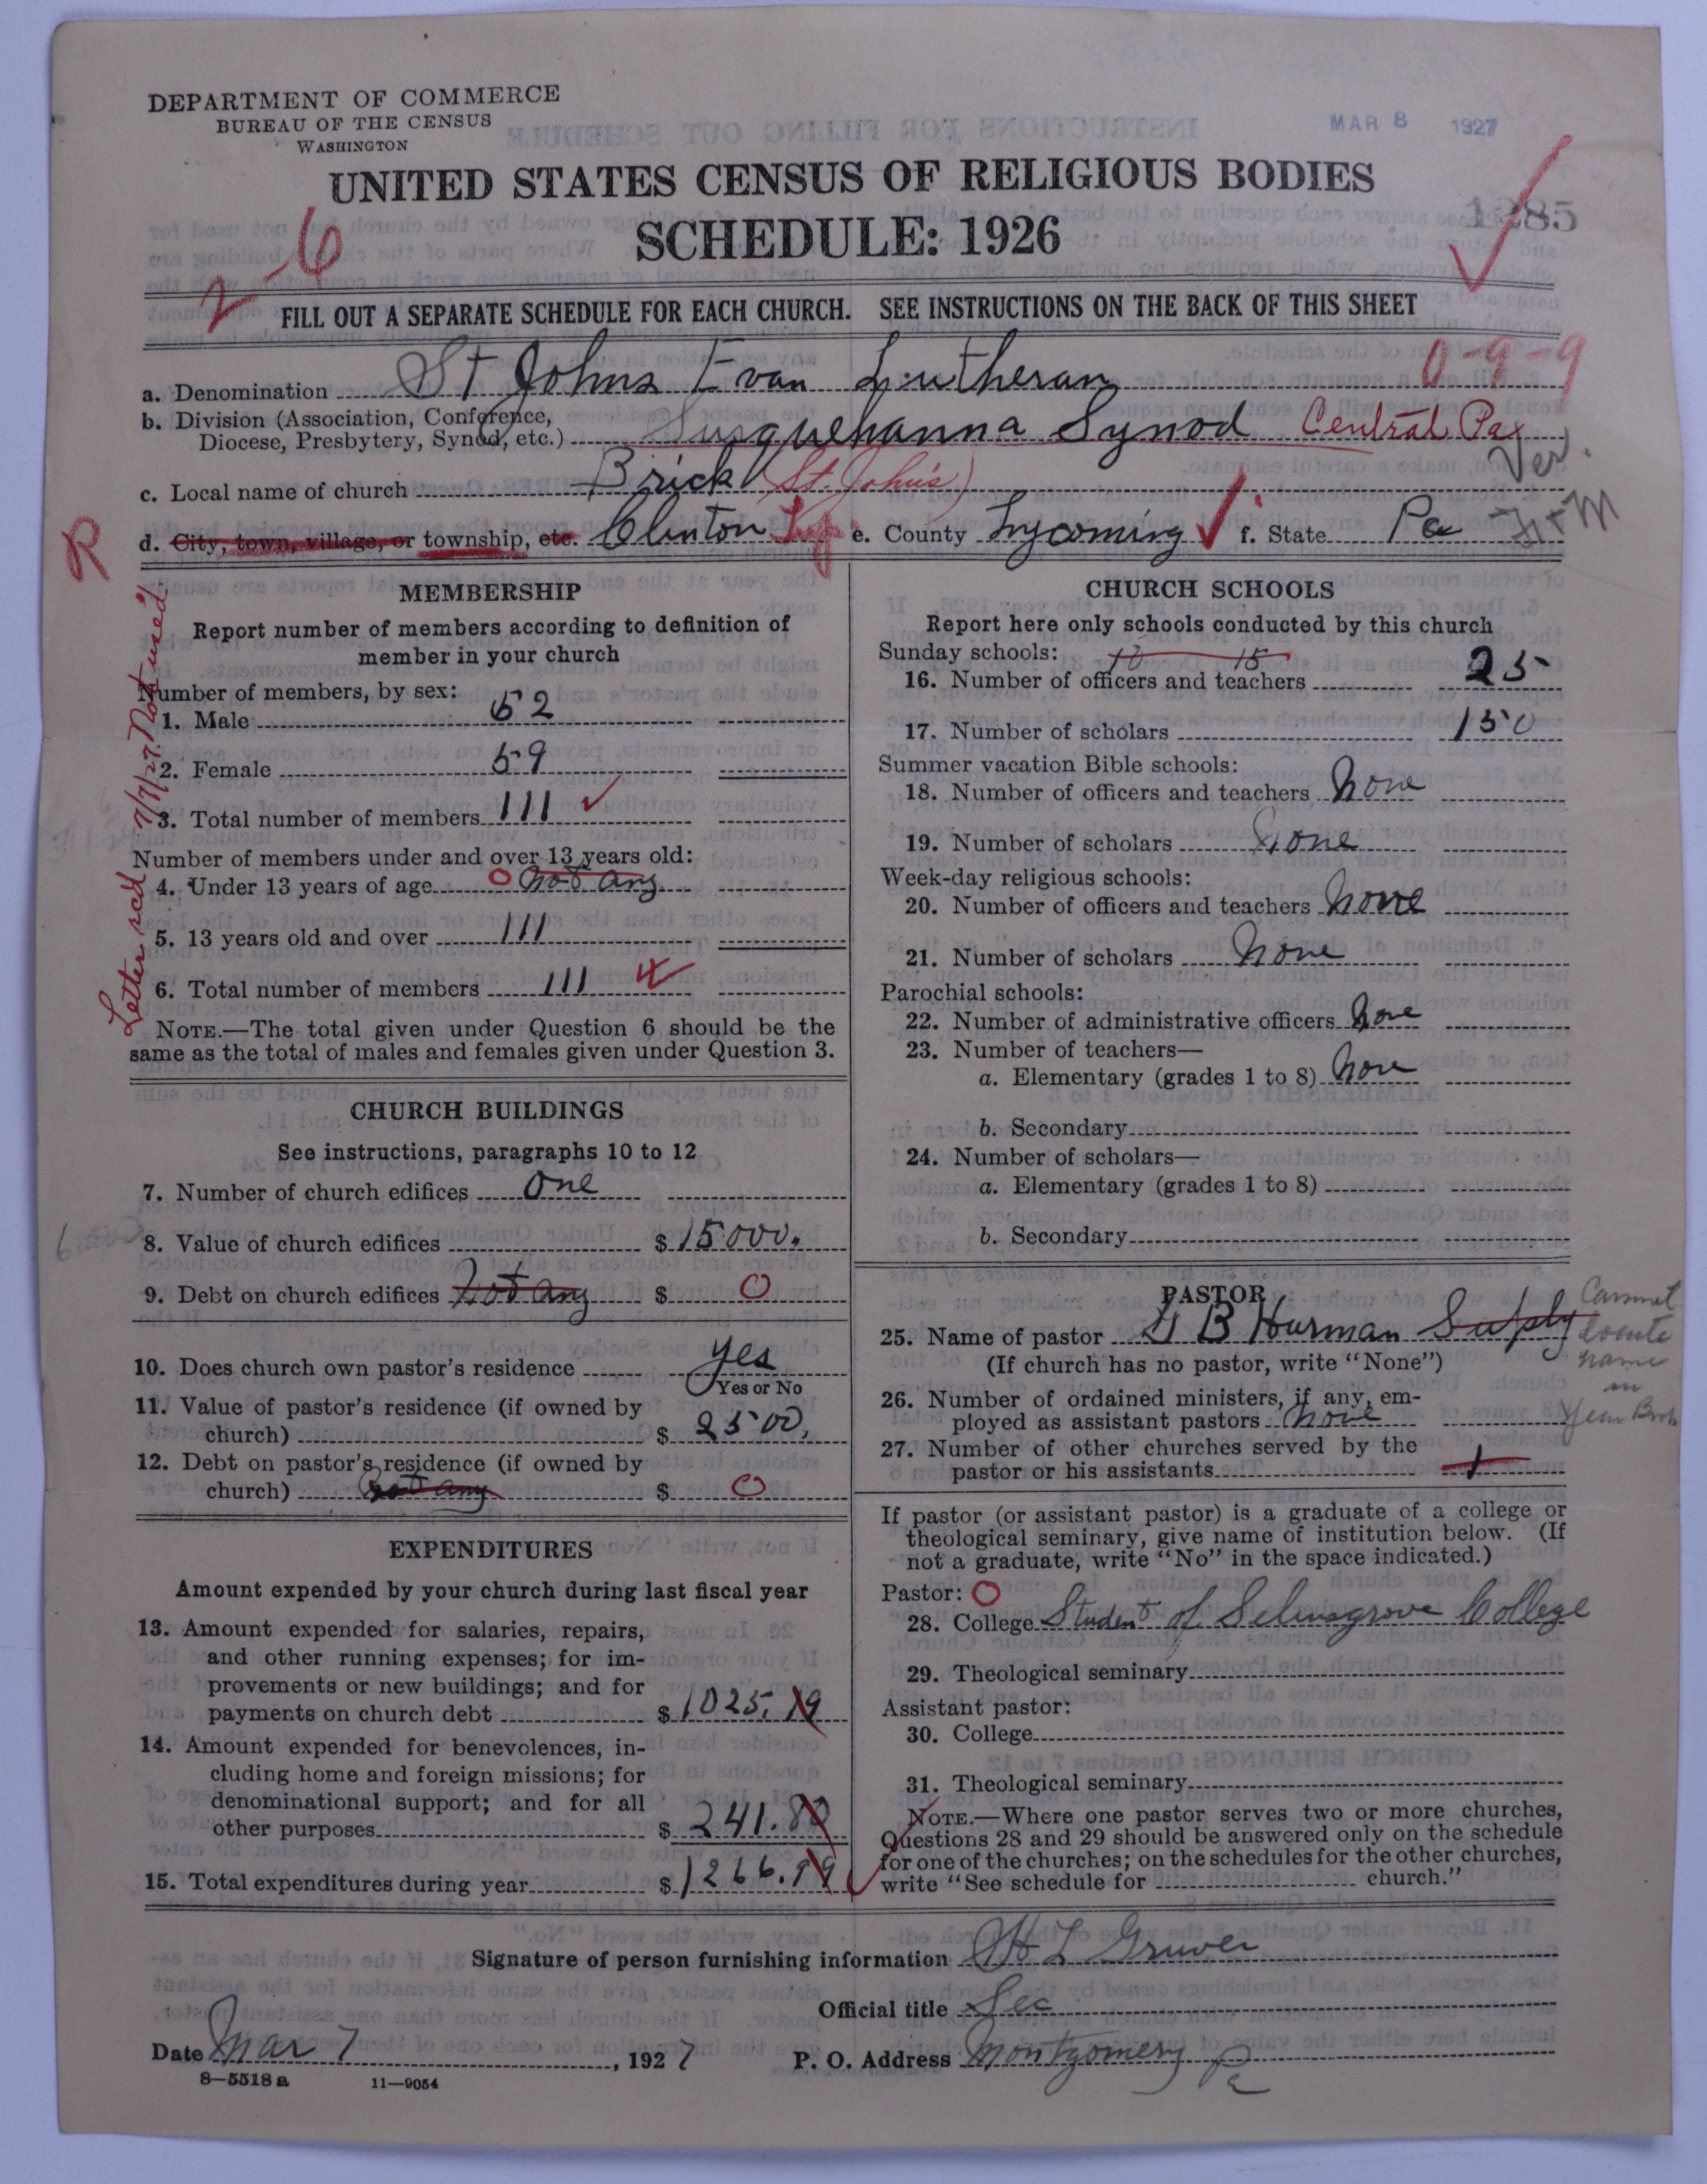 DEPARTMENT OF COMMERCE
BUREAU OF THE CENSUS
WASHINGTON
MAR 8 1927
UNITED STATES CENSUS OF RELIGIOUS BODIES
SCHEDULE: 1926
1285
2-6
FILL OUT A SEPARATE SCHEDULE FOR EACH CHURCH. SEE INSTRUCTIONS ON THE BACK OF THIS SHEET
a. Denomination St Johns Evan Lutheran 0-9-9
b. Division (Association, Conference,
Diocese, Presbytery, Synod, etc.) Susquehanna Synod Central Pa
Ver.
c. Local name of church Brick (St. John's)
R
d. City, town, village, or township, etc. Clinton Twp. e. County Lycoming f. State Pa
Letter rec'd 7/7/27. Not used.
MEMBERSHIP
Report number of members according to definition of
member in your church
Number of members, by sex:
1. Male 52
2. Female 59
3. Total number of members 111
Number of members under and over 13 years old:
4. Under 13 years of age 0 not any
5. 13 years old and over 111
6. Total number of members 111
NOTE.—The total given under Question 6 should be the
same as the total of males and females given under Question 3.
CHURCH BUILDINGS
See instructions, paragraphs 10 to 12
7. Number of church edifices one
8. Value of church edifices $ 15000.
9. Debt on church edifices Not any $ 0
10. Does church own pastor's residence yes
Yes or No
11. Value of pastor's residence (if owned by
church) $ 2500.
12. Debt on pastor's residence (if owned by
church) not any $ 0
EXPENDITURES
Amount expended by your church during last fiscal year
13. Amount expended for salaries, repairs,
and other running expenses; for im-
provements or new buildings; and for
payments on church debt $ 1025.19
14. Amount expended for benevolences, in-
cluding home and foreign missions; for
denominational support; and for all
other purposes $ 241.80
15. Total expenditures during year $ 1266.99
CHURCH SCHOOLS
Report here only schools conducted by this church
Sunday schools: 10 15
16. Number of officers and teachers 25
17. Number of scholars 150
Summer vacation Bible schools:
18. Number of officers and teachers None
19. Number of scholars None
Week-day religious schools:
20. Number of officers and teachers None
21. Number of scholars None
Parochial schools:
22. Number of administrative officers None
23. Number of teachers—
a. Elementary (grades 1 to 8) None
b. Secondary
24. Number of scholars—
a. Elementary (grades 1 to 8)
b. Secondary
PASTOR
25. Name of pastor B Hurman Suply
Cannot
locate
name
in
Year Book
(If church has no pastor, write "None")
26. Number of ordained ministers, if any, em-
ployed as assistant pastors None
27. Number of other churches served by the
pastor or his assistants 1
If pastor (or assistant pastor) is a graduate of a college or
theological seminary, give name of institution below. (If
not a graduate, write "No" in the space indicated.)
Pastor: 0
28. College Student of Selinsgrove College
29. Theological seminary
Assistant pastor:
30. College
31. Theological seminary
NOTE.—Where one pastor serves two or more churches,
Questions 28 and 29 should be answered only on the schedule
for one of the churches; on the schedules for the other churches,
write "See schedule for church."
Signature of person furnishing information L Gruver
Official title Sec
Date Mar 7, 1927 P. O. Address Montgomery Pa
8—5518 a 11—9054